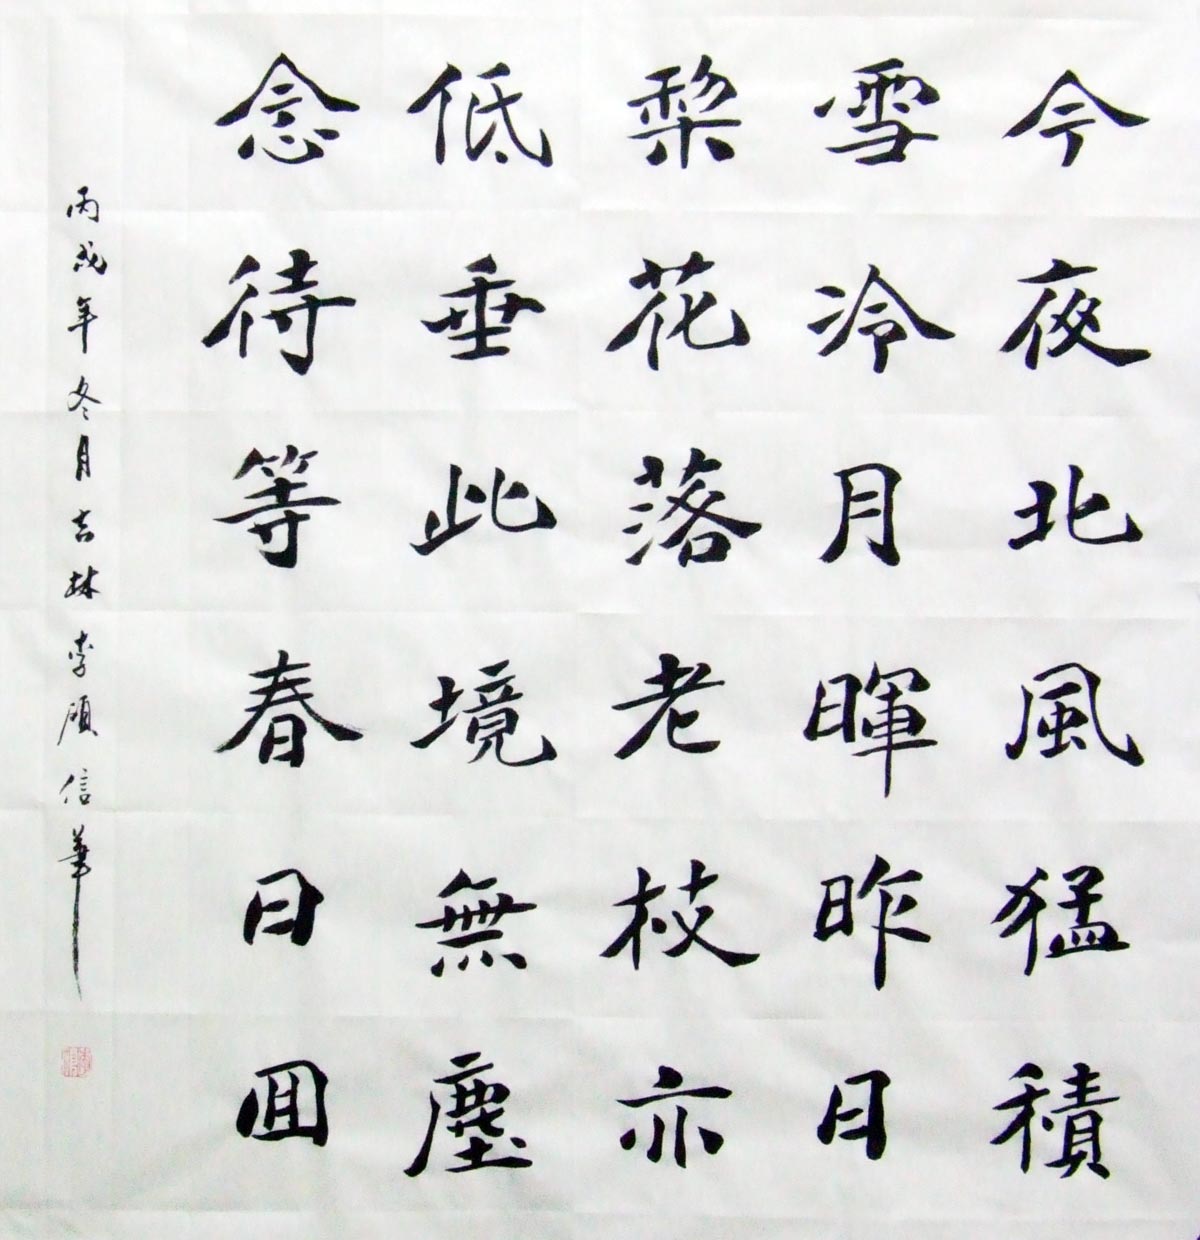 今夜北風猛積
雪冷月暉昨日
梨花落老枝亦
低垂此境無塵
念待等春日回
丙戌年冬月吉林李碩信筆